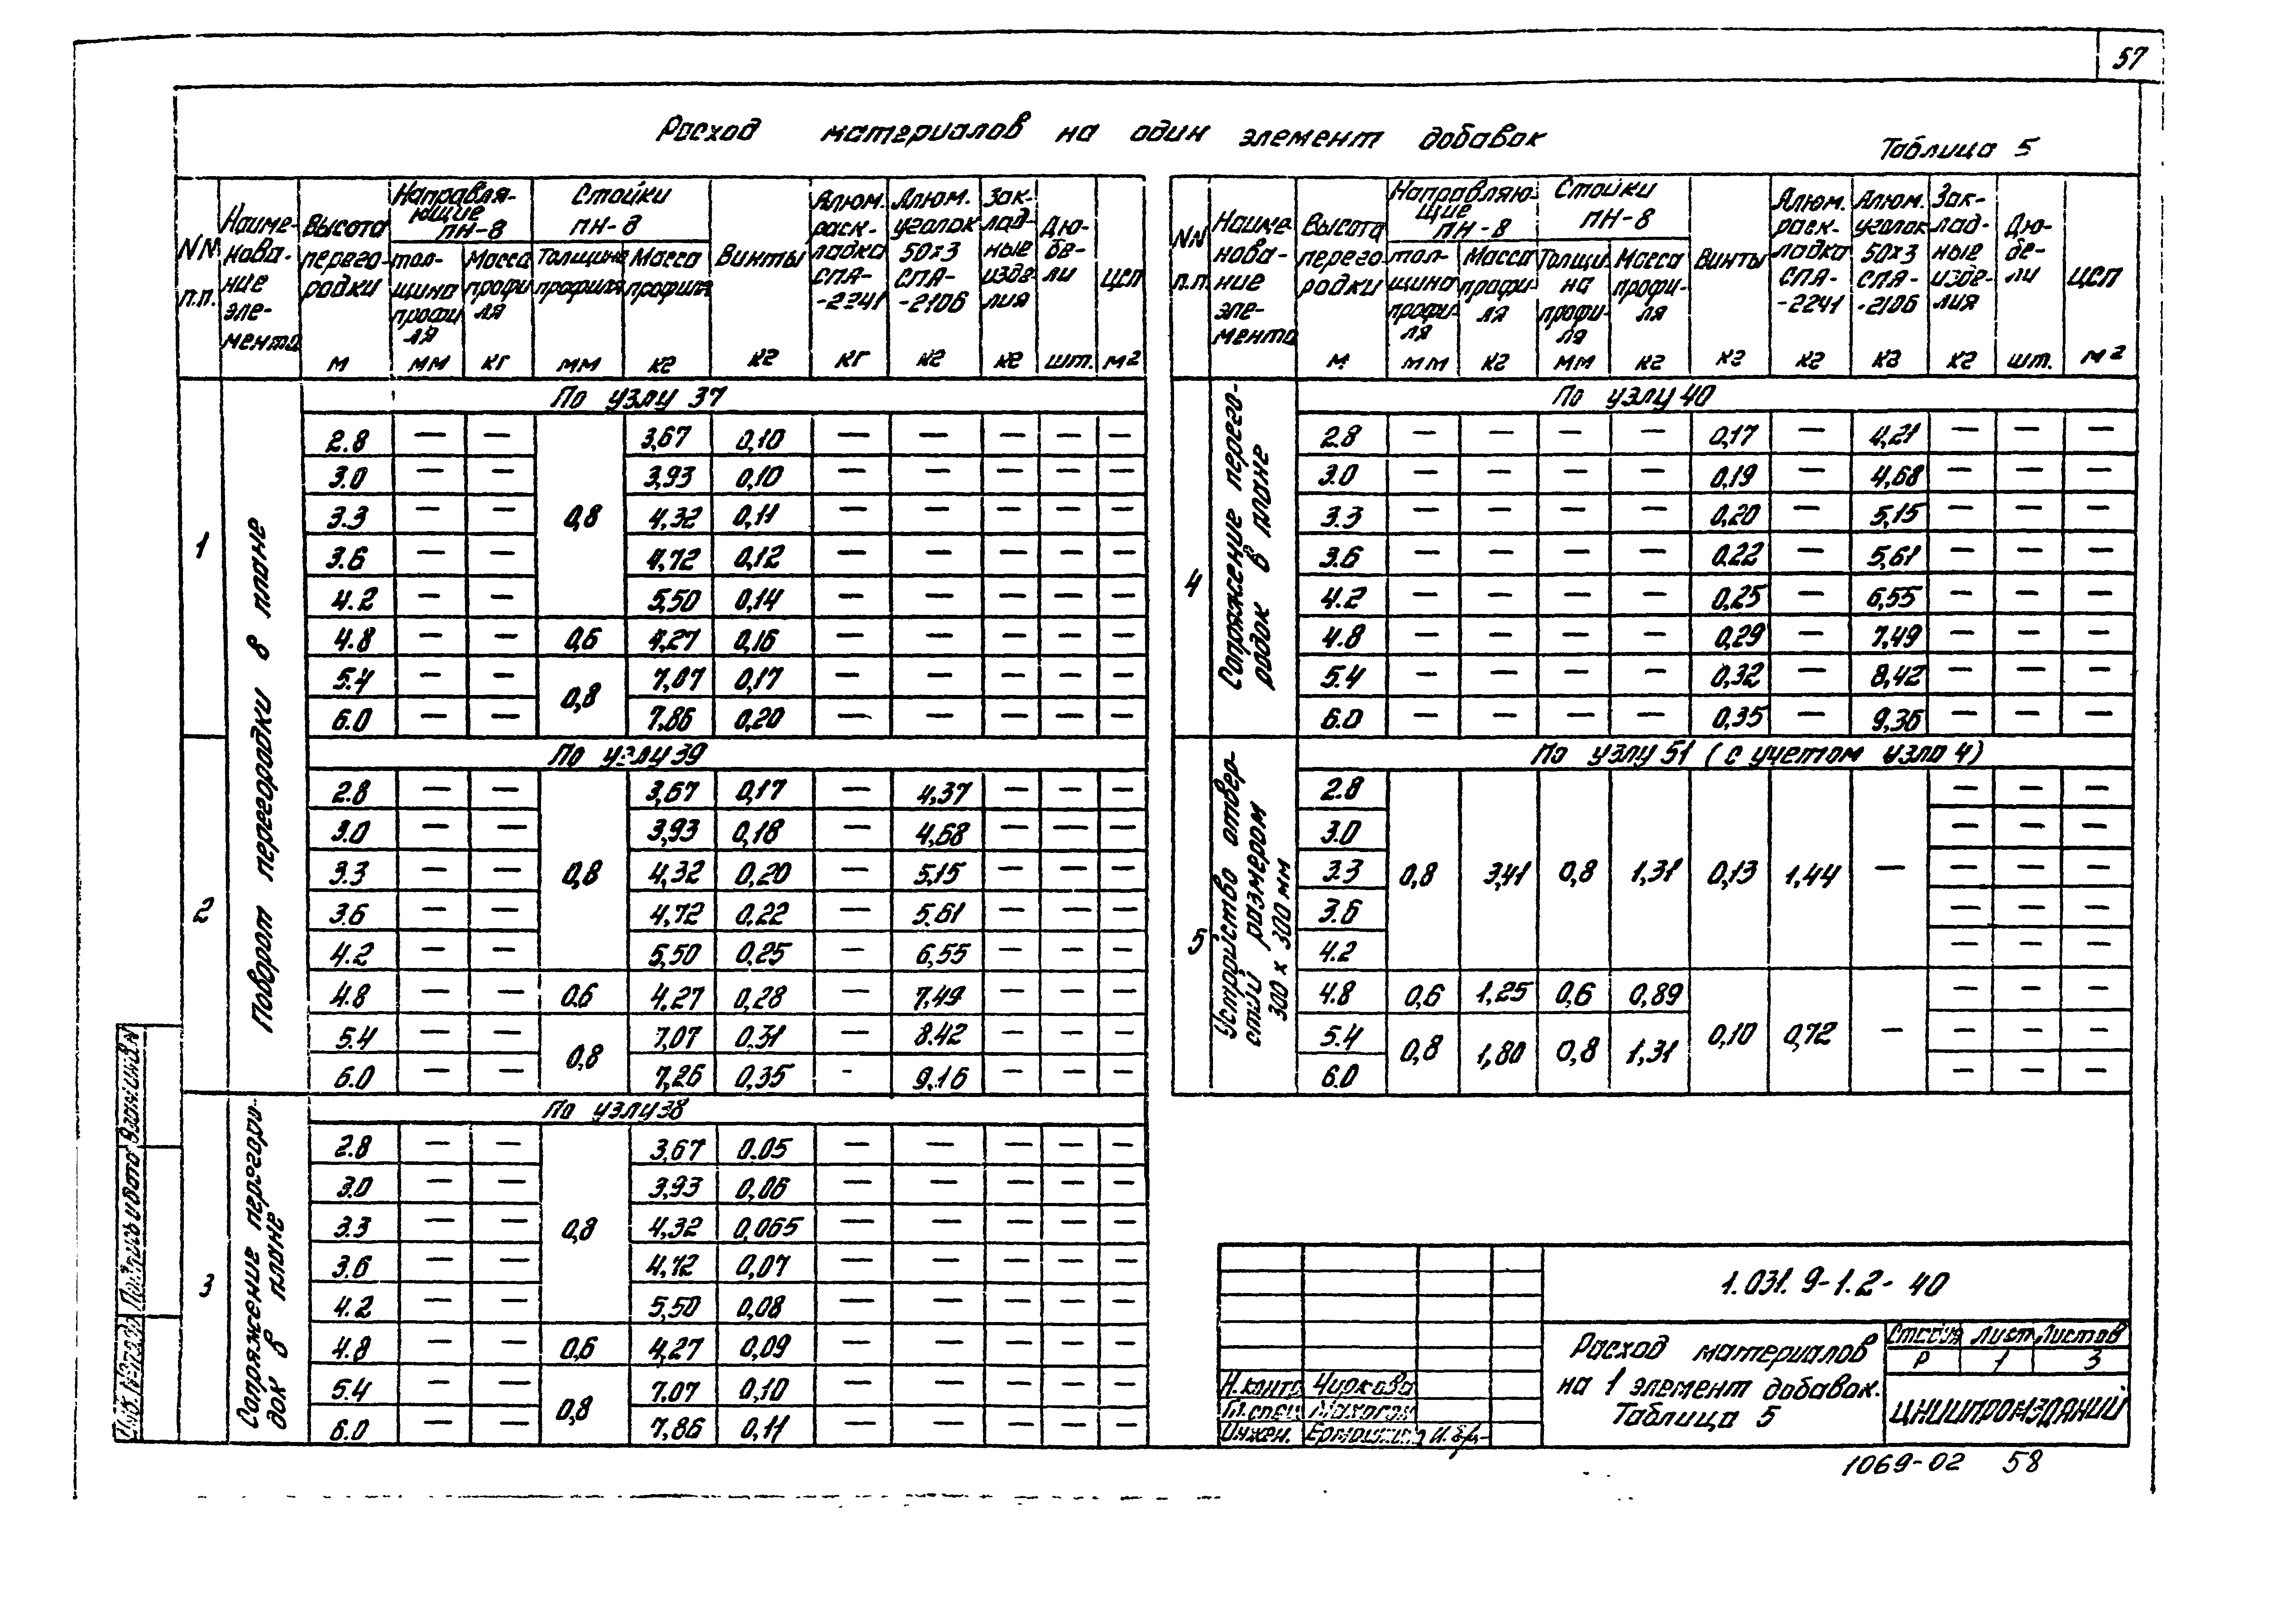 57
Расход материалов на один элемент добавок
Таблица 5
NN п.п. | Наиме-нова-ние эле-мента | Высота перего-родки м | Направля-ющие ПН-8 | Стойки ПН-8 | Винты кг | Алюм. раск-ладка СПА-2241 кг | Алюм. уголок 50х3 СПА-2106 кг | Зак-лад-ные изде-лия кг | Дю-бе-ли шт. | ЦСП м²
тол-щина профи-ля мм | Масса профи-ля кг | Толщина профиля мм | Масса профиля кг
1 | Поворот перегородки в плане
По узлу 37
2.8 | — | — | 0,8 | 3,67 | 0,10 | — | — | — | — | —
3.0 | — | — | 3,93 | 0,10 | — | — | — | — | —
3.3 | — | — | 4,32 | 0,11 | — | — | — | — | —
3.6 | — | — | 4,72 | 0,12 | — | — | — | — | —
4.2 | — | — | 5,50 | 0,14 | — | — | — | — | —
4.8 | — | — | 0,6 | 4,27 | 0,16 | — | — | — | — | —
5.4 | — | — | 0,8 | 7,07 | 0,17 | — | — | — | — | —
6.0 | — | — | 7,86 | 0,20 | — | — | — | — | —
2
По узлу 39
2.8 | — | — | 0,8 | 3,67 | 0,17 | — | 4,37 | — | — | —
3.0 | — | — | 3,93 | 0,18 | — | 4,68 | — | — | —
3.3 | — | — | 4,32 | 0,20 | — | 5,15 | — | — | —
3.6 | — | — | 4,72 | 0,22 | — | 5,61 | — | — | —
4.2 | — | — | 5,50 | 0,25 | — | 6,55 | — | — | —
4.8 | — | — | 0.6 | 4,27 | 0,28 | — | 7,49 | — | — | —
5.4 | — | — | 0,8 | 7,07 | 0,31 | — | 8.42 | — | — | —
6.0 | — | — | 7,26 | 0,35 | - | 9,16 | — | — | —
3 | Сопряжение перегоро-док в плане
По узлу 38
2.8 | — | — | 0,8 | 3,67 | 0.05 | — | — | — | — | —
3.0 | — | — | 3,93 | 0,06 | — | — | — | — | —
3.3 | — | — | 4,32 | 0,065 | — | — | — | — | —
3.6 | — | — | 4,72 | 0,07 | — | — | — | — | —
4.2 | — | — | 5,50 | 0,08 | — | — | — | — | —
4.8 | — | — | 0,6 | 4,27 | 0,09 | — | — | — | — | —
5.4 | — | — | 0,8 | 7,07 | 0,10 | — | — | — | — | —
6.0 | — | — | 7,86 | 0,11 | — | — | — | — | —
NN п.п. | Наиме-нова-ние эле-мента | Высота перего-родки м | Направляю-щие ПН-8 | Стойки ПН-8 | Винты кг | Алюм. раск-ладка СПА-2241 кг | Алюм. уголок 50х3 СПА-2106 кг | Зак-лад-ные изде-лия кг | Дю-бе-ли шт. | ЦСП м²
тол-щина профи-ля мм | Масса профи-ля кг | Толщи-на профи-ля мм | Масса профи-ля кг
4 | Сопряжение перего-родок в плане
По узлу 40
2.8 | — | — | — | — | 0,17 | — | 4,21 | — | — | —
3.0 | — | — | — | — | 0,19 | — | 4,68 | — | — | —
3.3 | — | — | — | — | 0,20 | — | 5,15 | — | — | —
3.6 | — | — | — | — | 0.22 | — | 5,61 | — | — | —
4.2 | — | — | — | — | 0,25 | — | 6,55 | — | — | —
4.8 | — | — | — | — | 0,29 | — | 7,49 | — | — | —
5.4 | — | — | — | — | 0,32 | — | 8,42 | — | — | —
6.0 | — | — | — | — | 0,35 | — | 9,36 | — | — | —
5 | Устройство отвер-стий размером 300 х 300 мм
По узлу 51 (с учетом узла 4)
2.8 | — | — | —
3.0 | — | — | —
3.3 | 0,8 | 3,41 | 0,8 | 1,31 | 0,13 | 1,44 | — | — | — | —
3.6 | — | — | —
4.2 | — | — | —
4.8 | 0,6 | 1,25 | 0,6 | 0,89 | — | — | —
5.4 | 0,8 | 1,80 | 0,8 | 1,31 | 0,10 | 0,72 | — | — | — | —
6.0 | — | — | —
1.031.9-1.2-40
Расход материалов
на 1 элемент добавок.
Таблица 5
Стадия Лист Листов
Р 1 3
ЦНИИПРОМЗДАНИЙ
Н.контр Чиркова
Гл.спец
Инжен.
1069-02 58